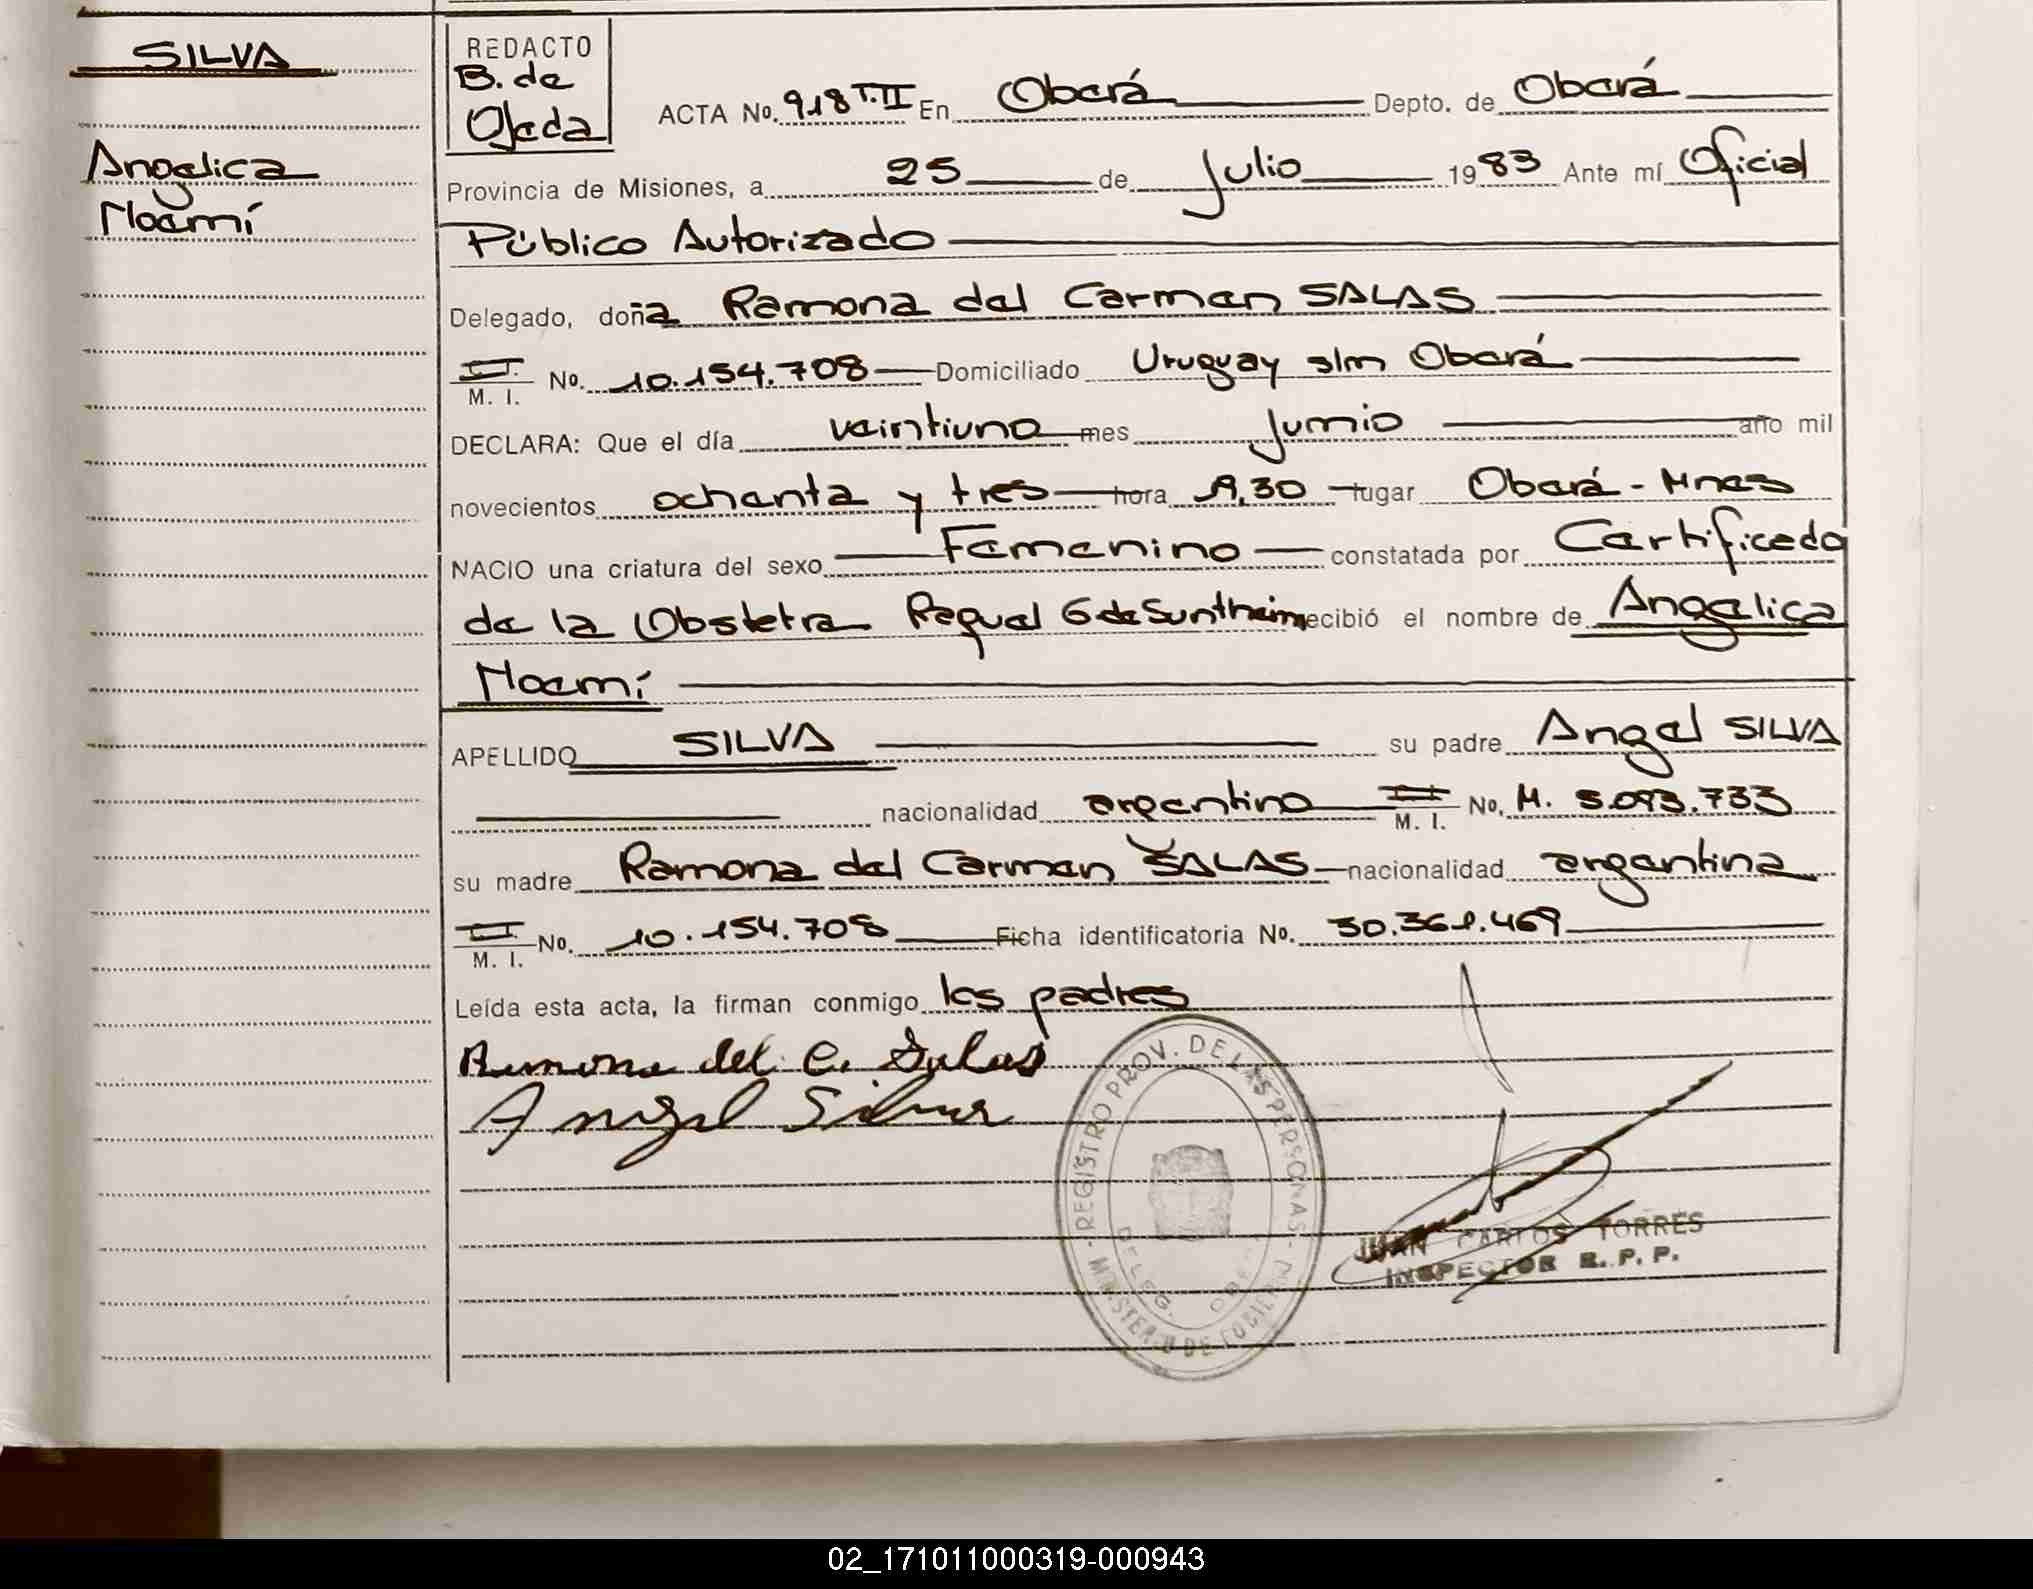 SILVA
Angelica
Noemí
REDACTO
B. de
Ojeda
ACTA No. 918 T.II En Oberá Depto. de Oberá
Provincia de Misiones, a 25 de Julio 1983 Ante mí Oficial
Público Autorizado
Delegado, doña Ramona del Carmen SALAS
M. I. No. 10.154.708 Domiciliado Uruguay s/n Oberá
DECLARA: Que el día veintiuno mes Junio año mil
novecientos ochenta y tres hora 9,30 lugar Oberá - Mnes
NACIO una criatura del sexo Femenino constatada por Certificado
de la Obstetra Raquel G de Suntheim recibió el nombre de Angelica
Noemí
APELLIDO SILVA su padre Angel SILVA
nacionalidad argentino M. I. No. M. 5.093.733
su madre Ramona del Carmen SALAS nacionalidad argentina
M. I. No. 10.154.708 Ficha identificatoria No. 30.361.469
Leída esta acta, la firman conmigo los padres
Ramona del C. Salas
Angel Silva
REGISTRO PROV. DE LAS PERSONAS
MINISTERIO DE GOBIERNO
DELEG. OBERÁ
JUAN CARLOS TORRES
INSPECTOR R. P. P.
02_171011000319-000943